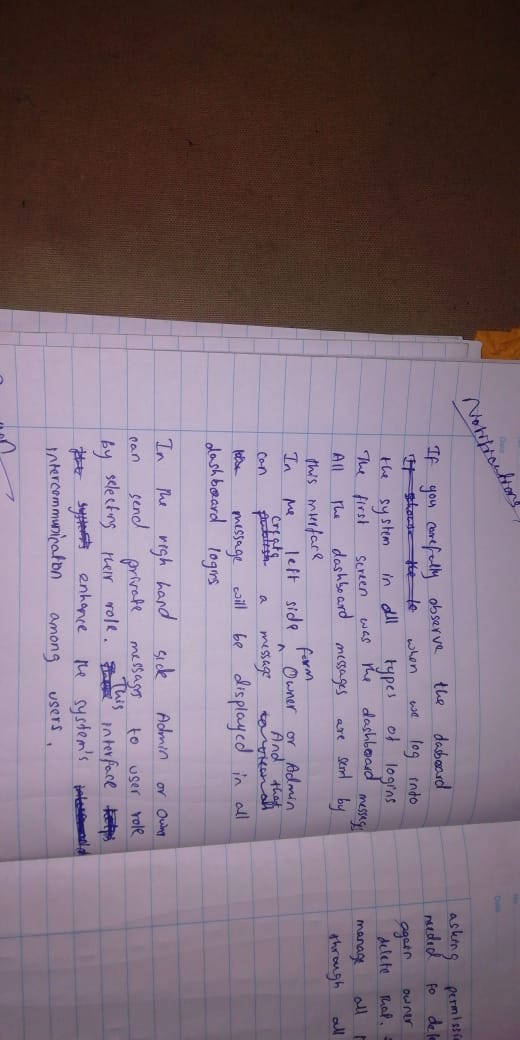 Notifications
If you carefully observe the dasboard
when we log into
the system in all types of logins
The first screen was the dashboard messages
All the dashboard messages are send by
this interface
In the left side form Owner or Admin
can create a message And that
message will be displayed in all
dashboard logins
In the righ hand side Admin or Owner
can send private messages to user role
by selecting their role. This interface
enhance the system's
intercommunication among users.
asking
needed to
again owner
delete that.
manage all
through all